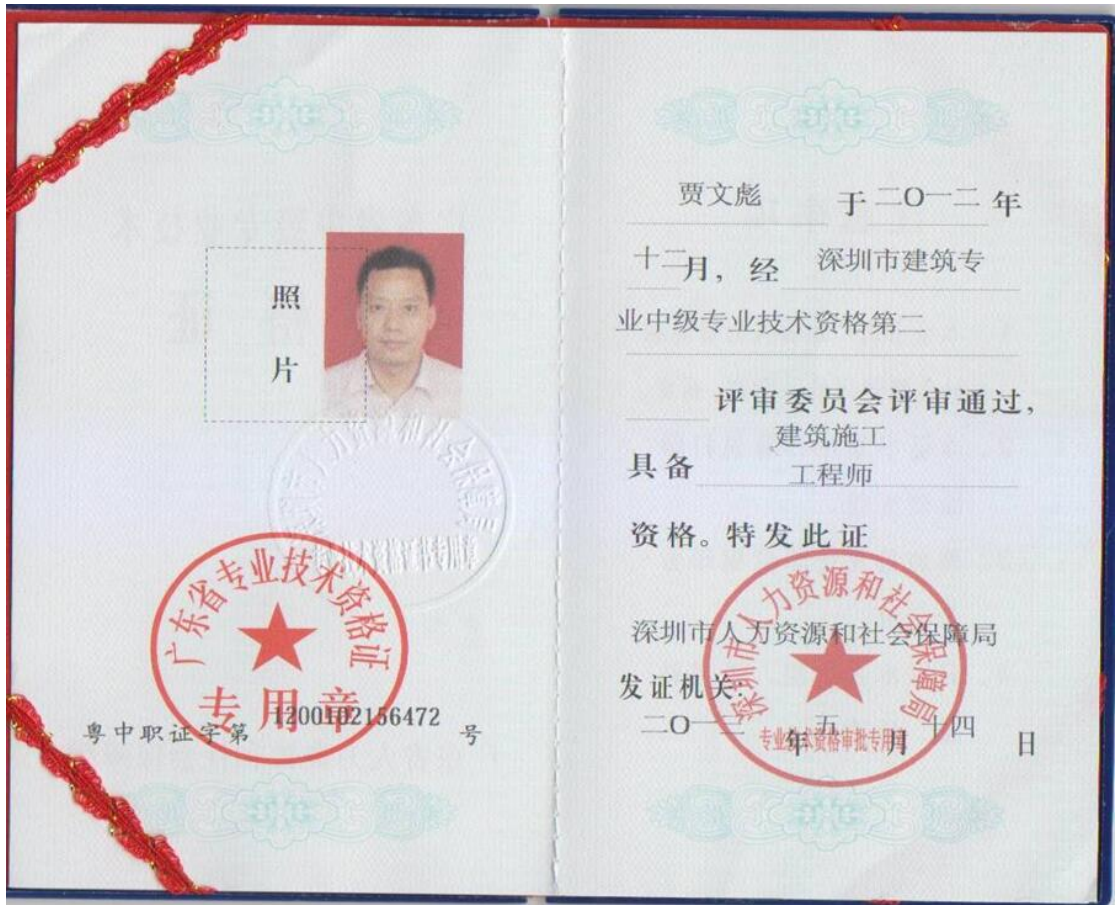 照
片
广东省专业技术资格证
专用章
粤中职证字第 1200102156472 号
贾文彪 于 二O一二 年
十二月，经 深圳市建筑专
业中级专业技术资格第二
评审委员会评审通过，
建筑施工
具备 工程师
资格。特发此证
深圳市人力资源和社会保障局
深圳市人力资源和社会保障局
发证机关：
二O一三 年 五 月 十四 日
专业技术资格审批专用章